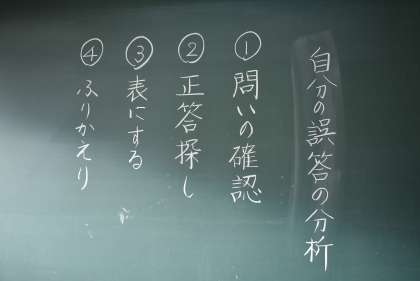 自分の誤答の分析
①問いの確認
②正答探し
③表にする
④ふりかえり